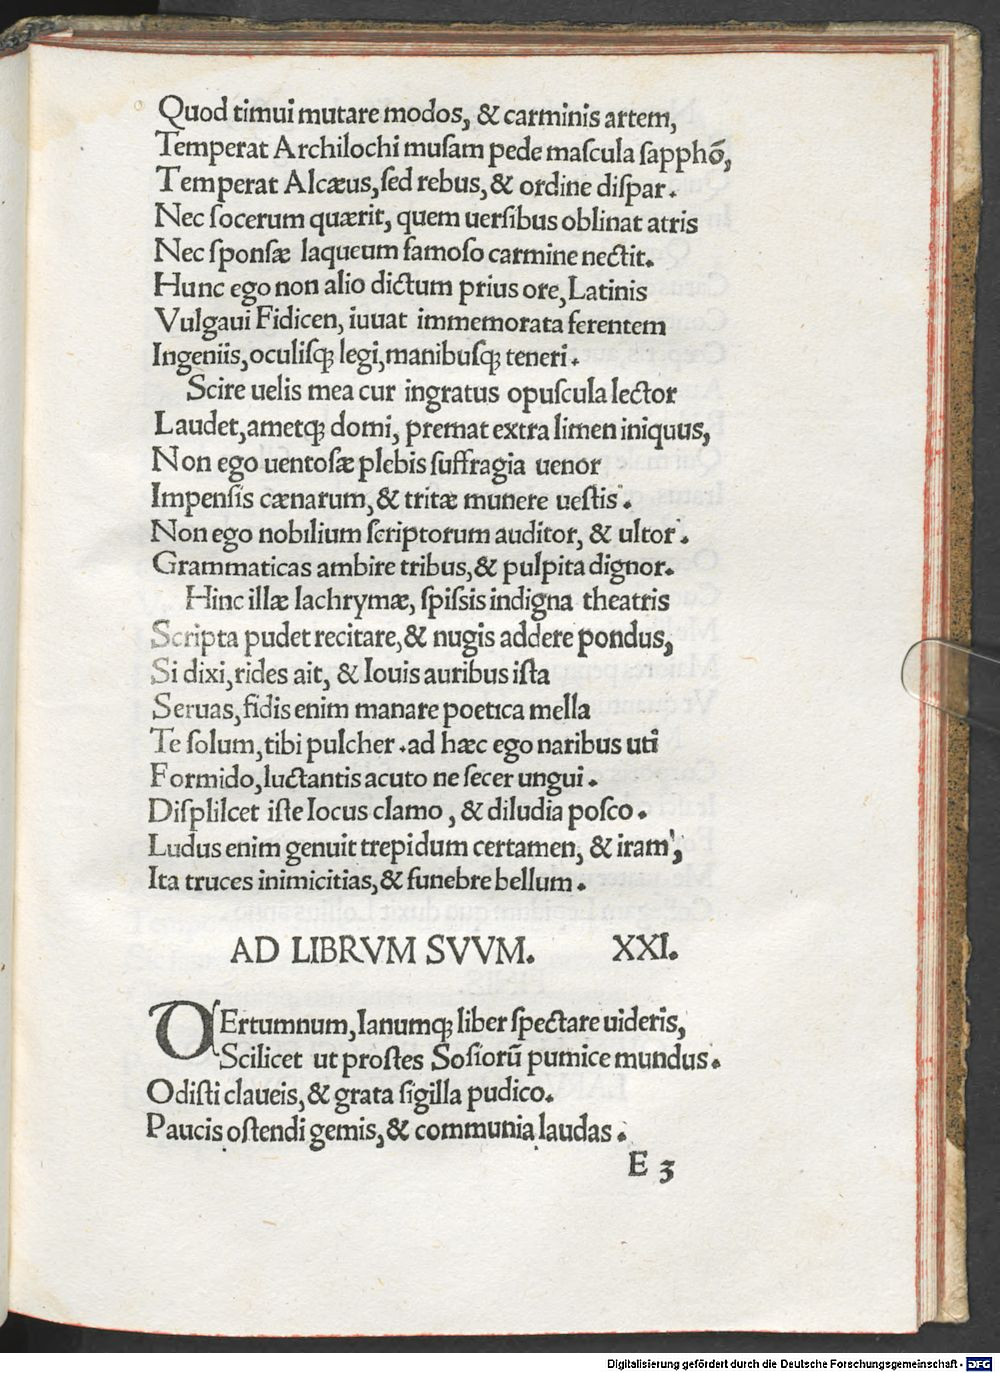 Quod timui mutare modos, & carminis artem,
Temperat Archilochi muſam pede maſcula ſapphō,
Temperat Alcæus, ſed rebus, & ordine diſpar.
Nec ſocerum quærit, quem uerſibus oblinat atris
Nec ſponſæ laqueum famoſo carmine nectit.
Hunc ego non alio dictum prius ore, Latinis
Vulgaui Fidicen, iuuat immemorata ferentem
Ingeniis, oculiſq; legi, manibuſq; teneri.
Scire uelis mea cur ingratus opuſcula lector
Laudet, ametq; domi, premat extra limen iniquus,
Non ego uentoſæ plebis ſuffragia uenor
Impenſis cænarum, & tritæ munere ueſtis.
Non ego nobilium ſcriptorum auditor, & ultor.
Grammaticas ambire tribus, & pulpita dignor.
Hinc illæ lachrymæ, ſpiſsis indigna theatris
Scripta pudet recitare, & nugis addere pondus,
Si dixi, rides ait, & Iouis auribus iſta
Seruas, fidis enim manare poetica mella
Te ſolum, tibi pulcher. ad hæc ego naribus uti
Formido, luctantis acuto ne ſecer ungui.
Diſplilcet iſte locus clamo, & diludia poſco.
Ludus enim genuit trepidum certamen, & iram,
Ita truces inimicitias, & funebre bellum.
AD LIBRVM SVVM. XXI.
VErtumnum, Ianumq; liber ſpectare uideris,
Scilicet ut proſtes Soſiorū pumice mundus.
Odiſti claueis, & grata ſigilla pudico.
Paucis oſtendi gemis, & communia laudas.
E 3
Digitalisierung gefördert durch die Deutsche Forschungsgemeinschaft - DFG